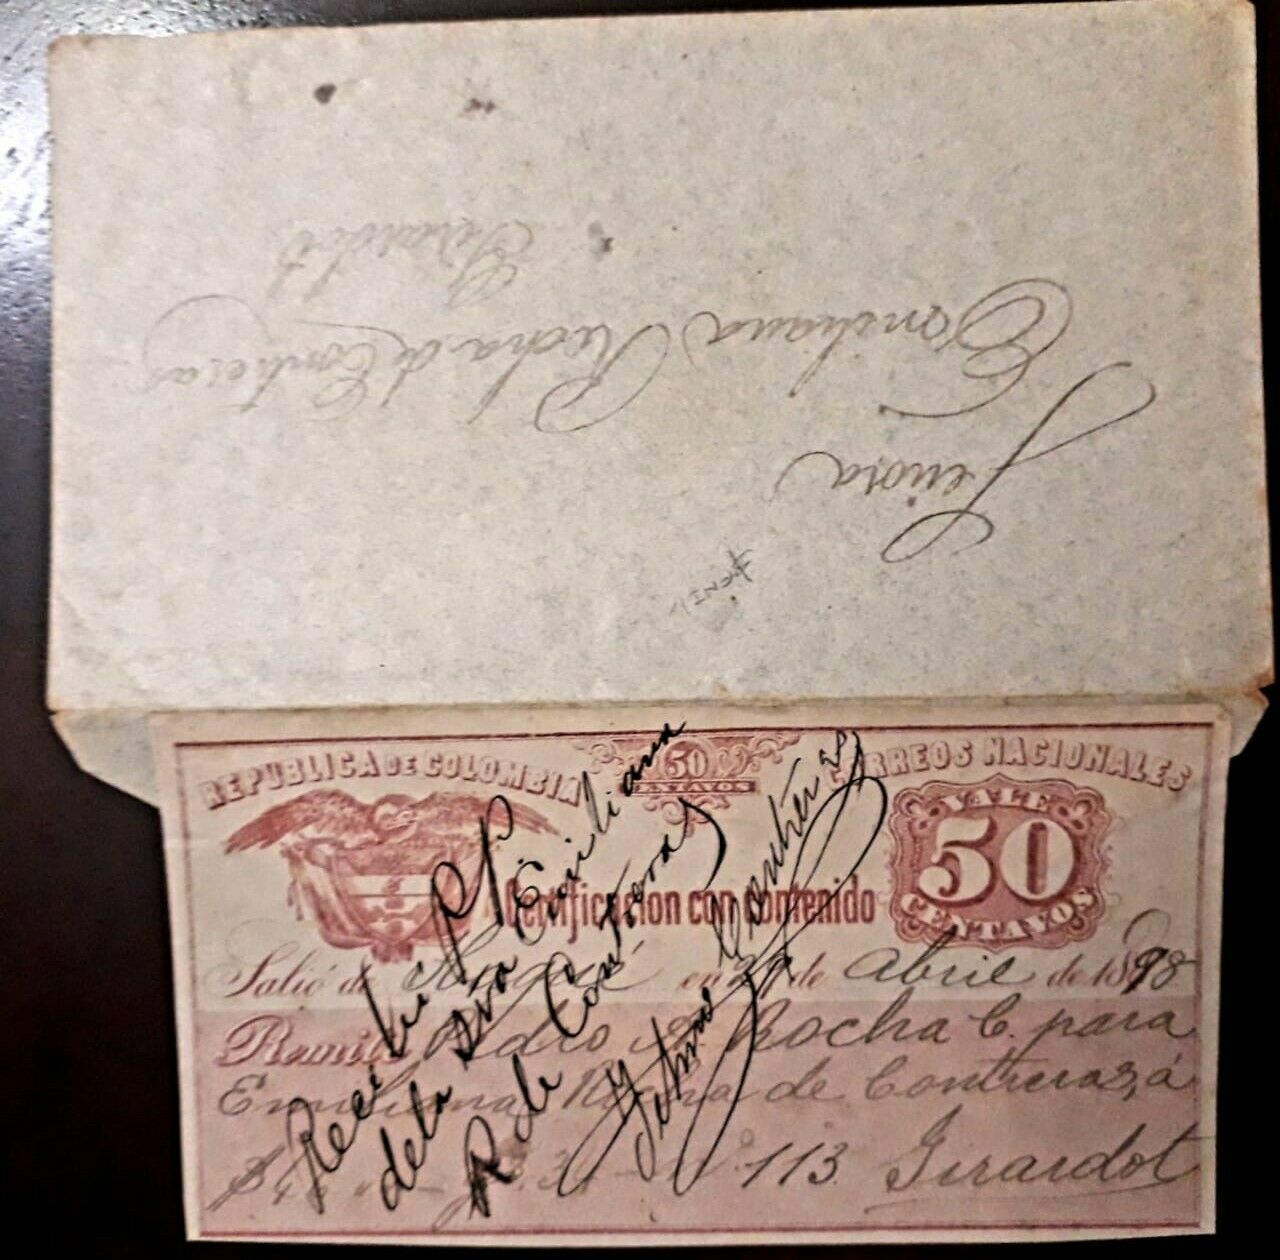 Señora
Emiliana Rocha de Contreras
Girardot
REPUBLICA DE COLOMBIA
50
CENTAVOS
CORREOS NACIONALES
VALE
50
CENTAVOS
Certificacion con contenido
Salió de en de Abril de 1898
Remite Pedro A Rocha C. para
Emiliana Rocha de Contreras, á
113. Girardot
Recibí P P
de la Sra Emiliana
R de Contreras
Contreras